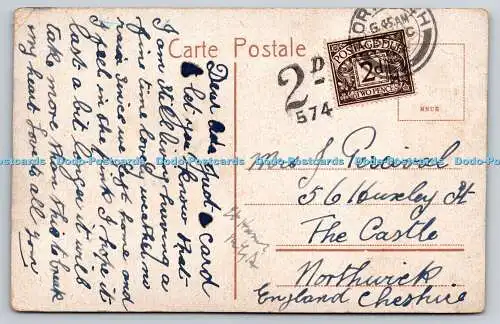 Carte Postale
Dear Ada Just a card
to let you know that
I am still having a
fine time lovely weather no
rain since we left home and
I feel in the pink I hope it
last a bit longer it will
take more than this to break
my heart Love to all yours
NORTHWICH
6.45 AM
POSTAGE DUE
2d
TWO PENCE
2D
574
Mrs J Percival
56 Huxley St
The Castle
Northwick
England Cheshire
Dodo-Postcards Dodo-Postcards Dodo-Postcards Dodo-Postcards Dodo-Postcards